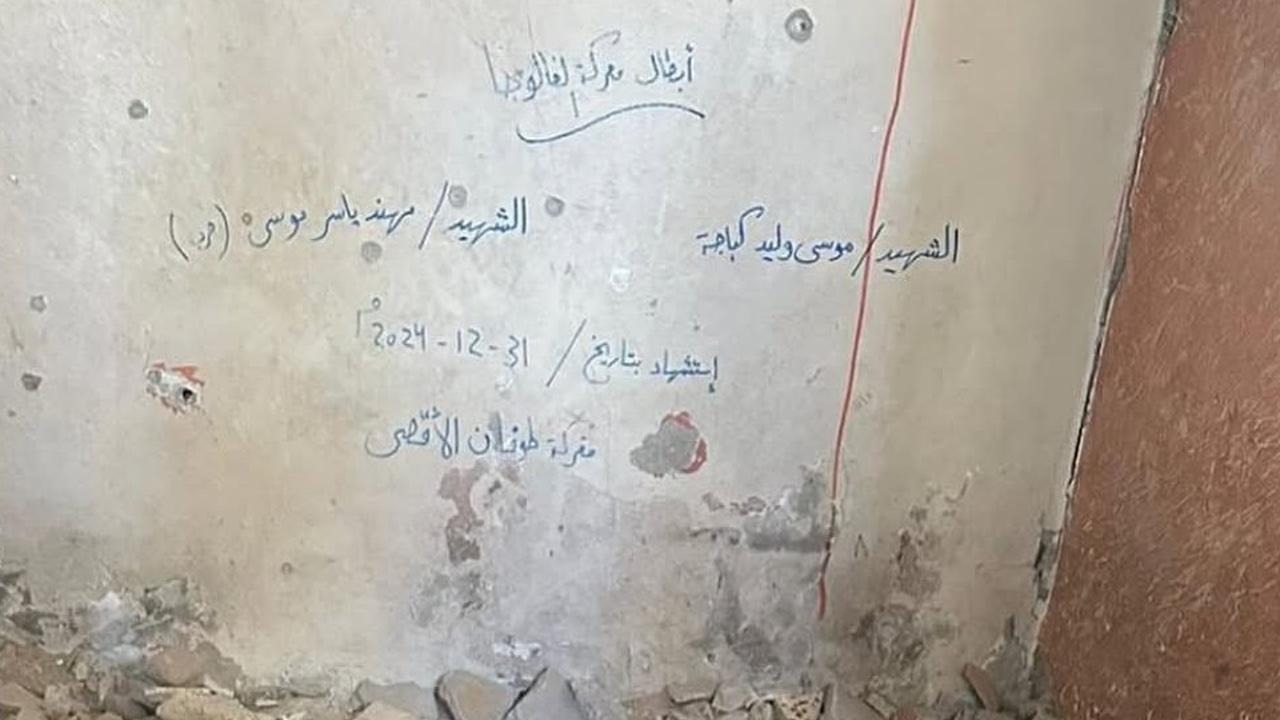 أبطال معركة لفالوجا
الشهيد/ موسى وليد كباجة
الشهيد/ مهند ياسر موسى
إستشهاد بتاريخ/ 31-12-2024م
معركة طوفان الأقصى